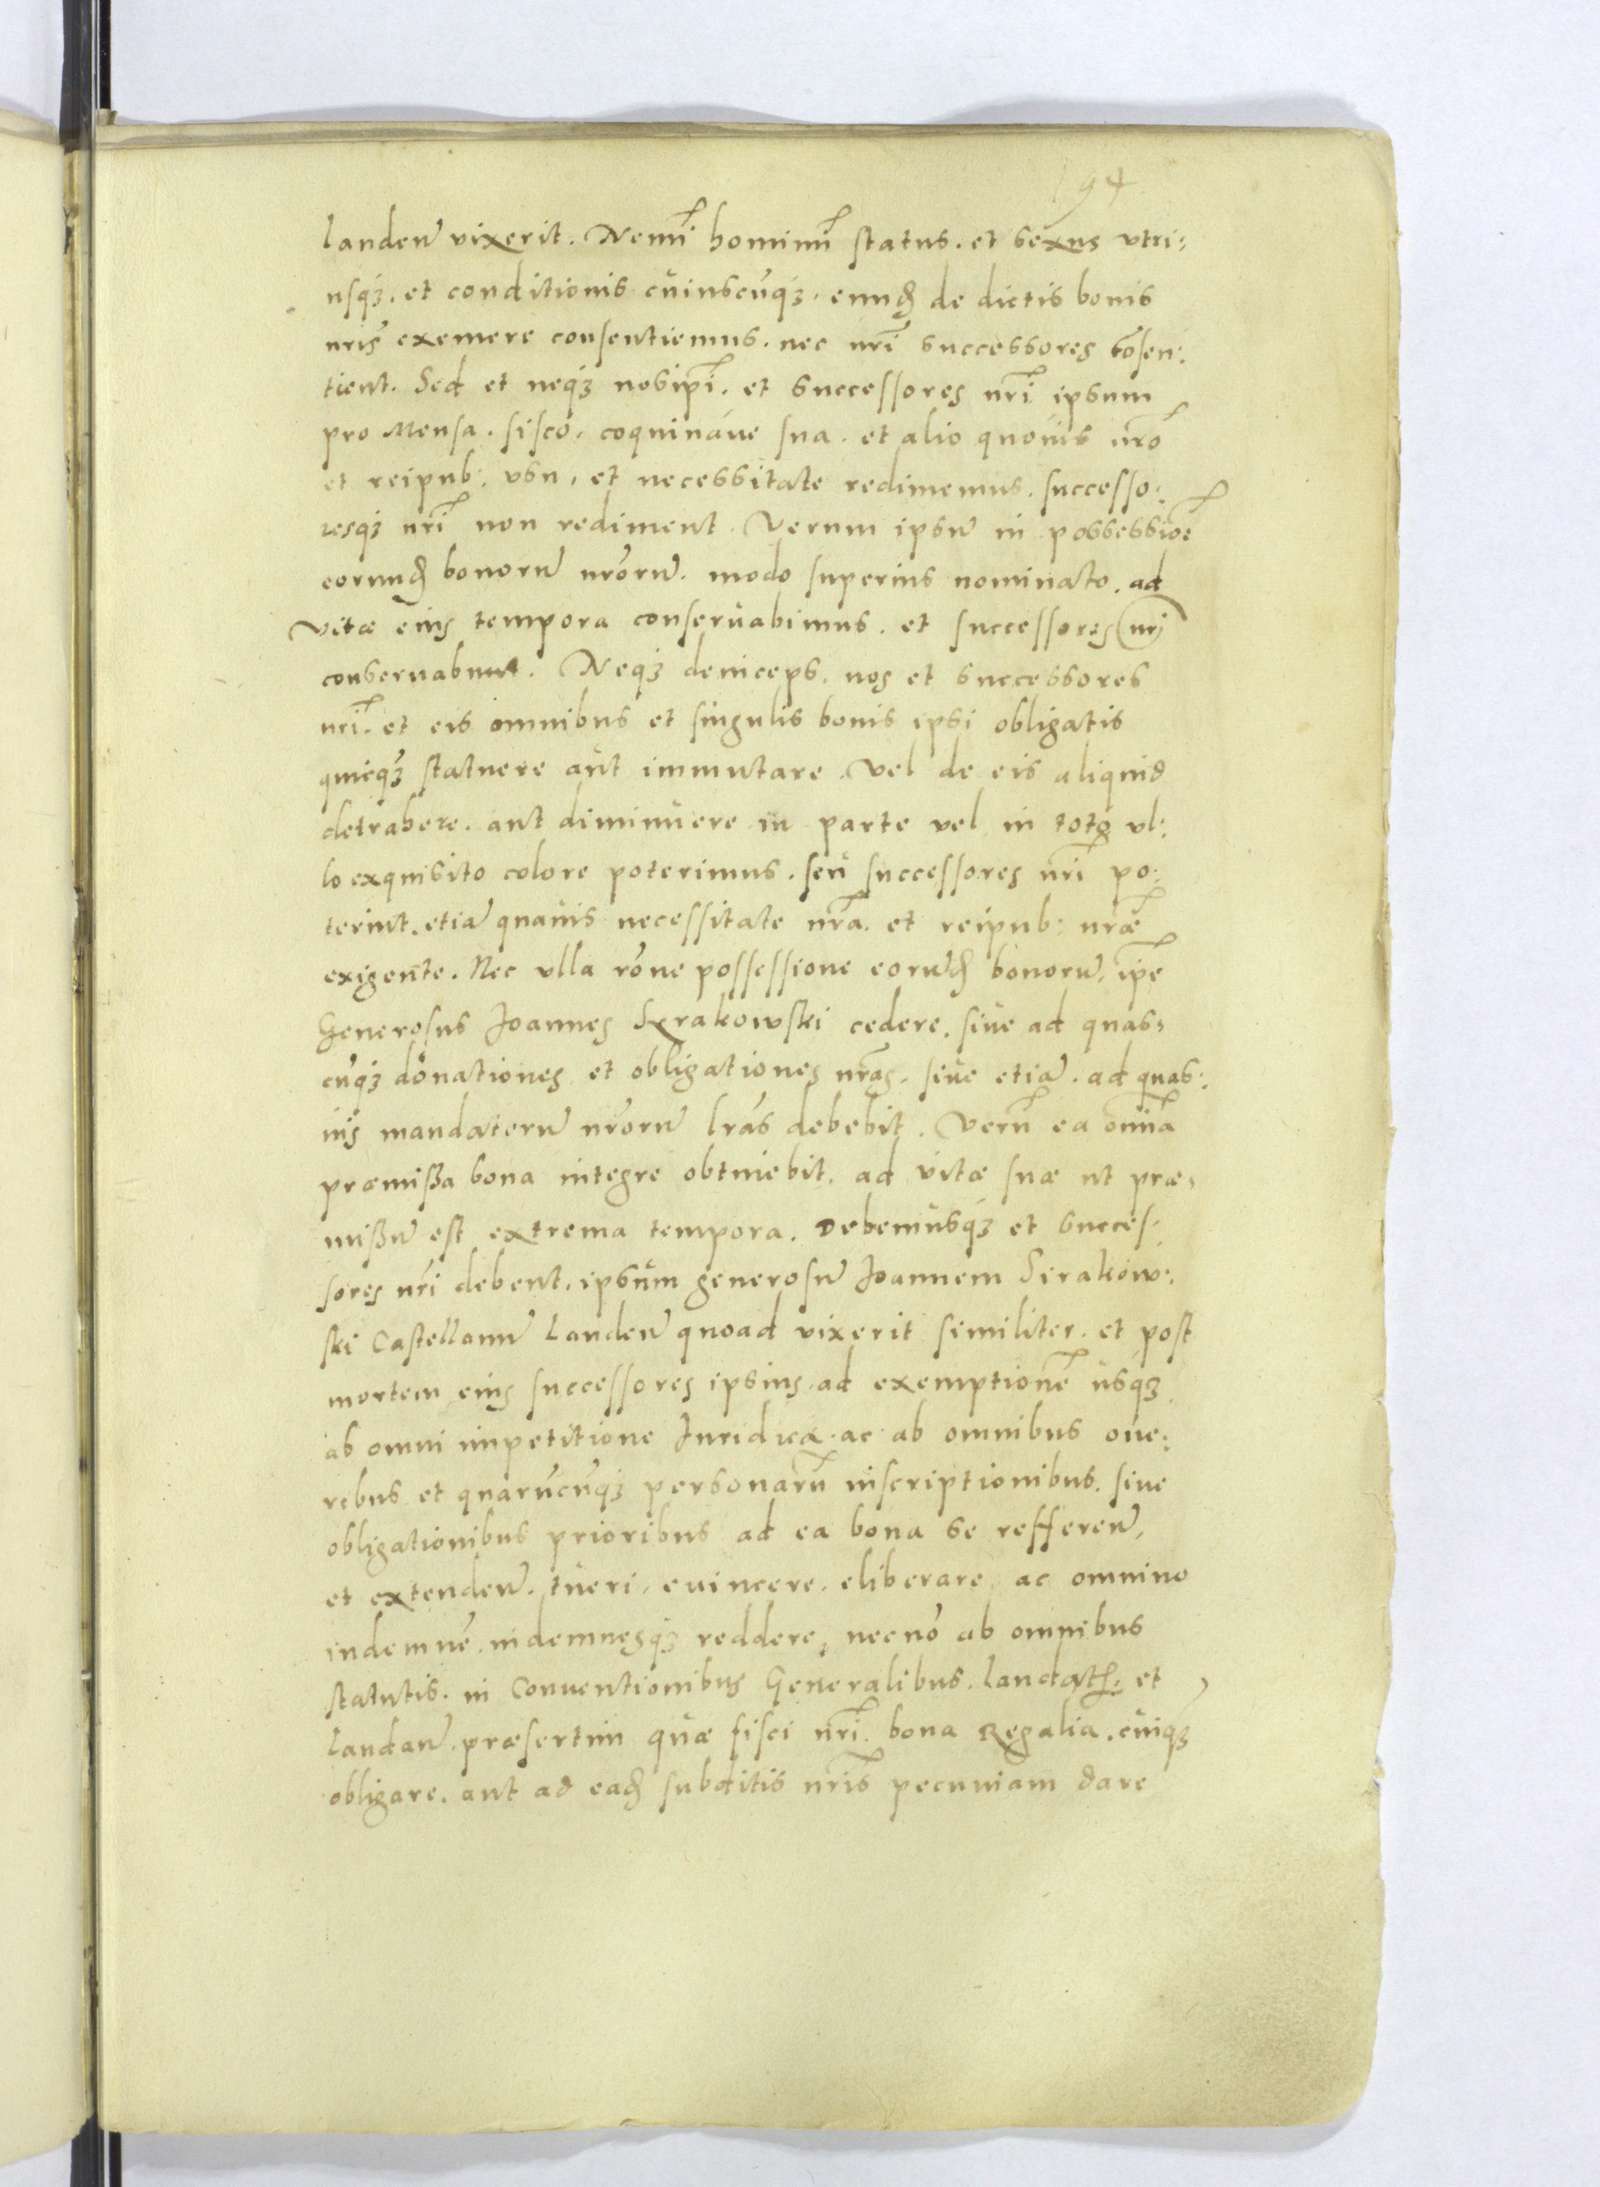 194
landen̄ vixerit. Nemi͂ hominu͂ status. et sexus vtri:
usq₃. et conditionis cuiuscu͂q₃. eund̄ de dictis bonis
nris͂ exemere consentiemus. nec nri͂ successores co͂sen:
tient. Sed et neq₃ nosipi͂. et successores nri͂ ipsum
pro Mensa. fisco, coquináue sua. et alio quouis nro͂
et reipub: vsu, et necessitate redimemus. successo:
resq₃ nri͂ non rediment. Verum ipsu͂ in possessio͂e
eorund̄ bonoru͂ nro͂ru͂. modo superius nominato. ad
vitæ eius tempora conseruabimus. et successores nri͂
conseruabunt. Neq₃ deinceps, nos et successores
nri͂. et eis omnibus et singulis bonis ipsi obligatis
quicq₃ statuere aut immutare. vel de eis aliquid
detrahere. aut diminuere in parte vel in toto vl:
lo exquisito colore poterimus. seu successores nri͂ po:
terint. etia͂ quauis necessitate nra͂. et reipub: nræ͂
exigente. Nec vlla ro͂ne possessione eorud̄ bonoru͂, ip͂e
Generosus Joannes Syrakowski cedere. siue ad quas:
cu͂q₃ donationes et obligationes nra͂s. siue etia͂. ad quas:
uis mandatoru͂ nro͂ru͂ lra͂s debebit. Veru͂ ea om͂ia
præmißa bona integre obtinebit. ad vitæ suæ ut præ:
mißu͂ est extrema tempora. Debemusq₃ et succes:
sores nri͂ debent. ipsum generosu͂ Joannem Sirakow:
ski Castellanu͂ Landen̄ quoad vixerit similiter. et post
mortem eius successores ipsius. ad exemptione͂ usq₃
ab omni impetitione Juridica. ac ab omnibus one:
rebus et quaru͂cu͂q₃ personaru͂ inscriptionibus. siue
obligationibus prioribus ad ea bona se refferen̄,
et extenden̄. tueri, euincere, eliberare, ac omnino
indemne͂, indemnesq₃ reddere, necno͂ ab omnibus
statutis. in Conuentionibus Generalibus. laudat: et
laudan̄. præsertim quæ fisci nri͂. bona Regalia. cuiq₃
obligare. aut ad ead̄ subditis nris͂ pecuniam dare